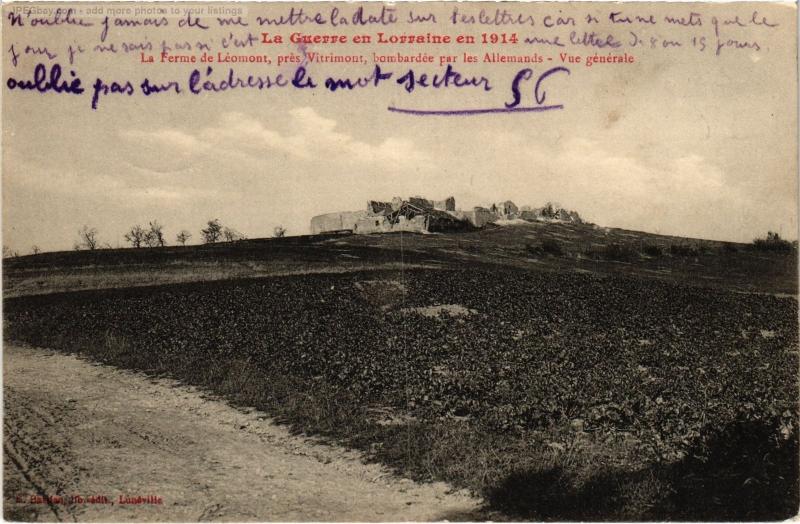 JPEGbay.com - add more photos to your listings
N'oublie jamais de me mettre la date sur tes lettres car si tu ne mets que le
jour je ne sais pas si c'est une lettre de 8 ou 15 jours.
La Guerre en Lorraine en 1914
La Ferme de Léomont, près Vitrimont, bombardée par les Allemands - Vue générale
oublie pas sur l'adresse le mot secteur 56
Bastien, lib.-édit., Lunéville